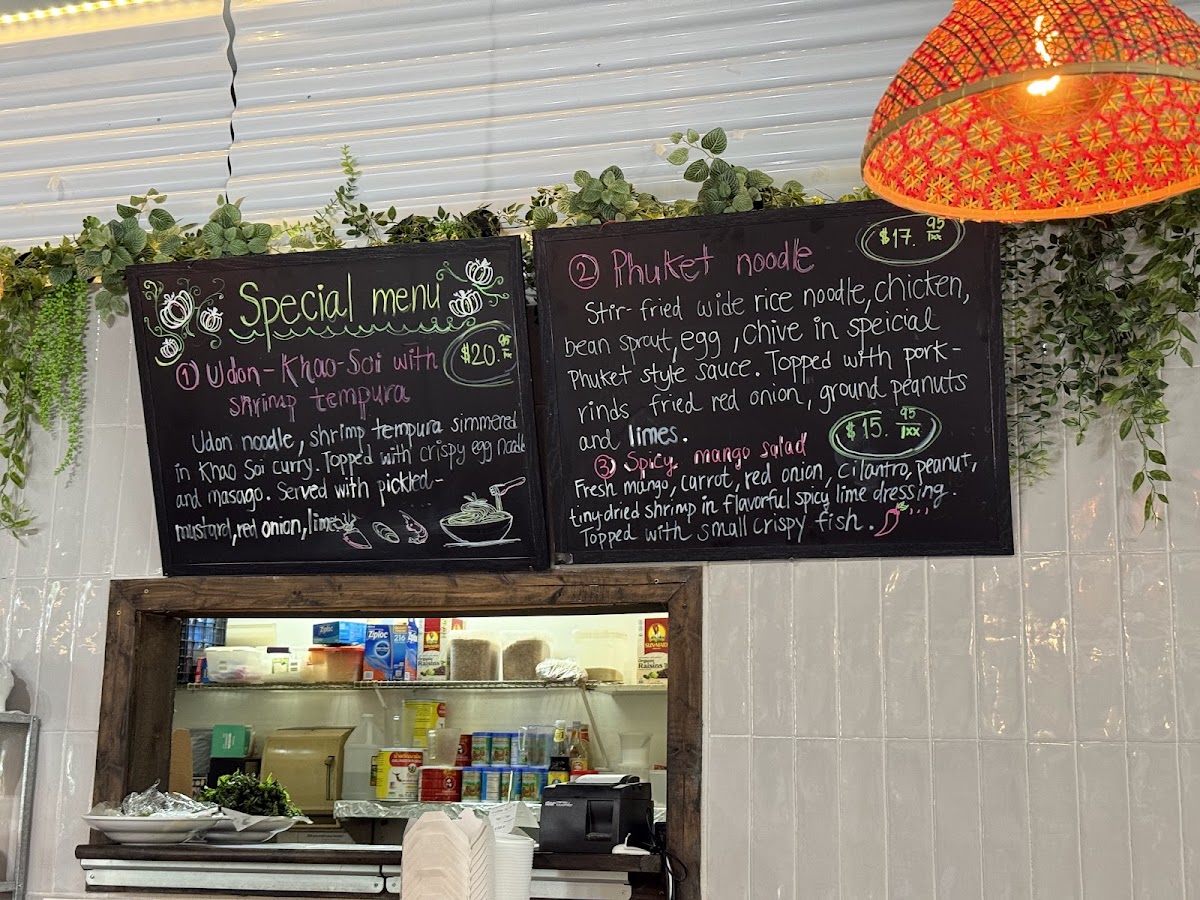 Special menu
① Udon-Khao-Soi with
$20.95
shrimp tempura
Udon noodle, shrimp tempura simmered
in Khao Soi curry. Topped with crispy egg noodle
and masago. Served with pickled-
mustard, red onion, lime
② Phuket noodle
$17.95
Stir-fried wide rice noodle, chicken,
bean sprout, egg, chive in speicial
Phuket style sauce. Topped with pork-
rinds fried red onion, ground peanuts
and limes.
$15.95
③ Spicy mango salad
Fresh mango, carrot, red onion, cilantro, peanut,
tiny-dried shrimp in flavorful spicy lime dressing.
Topped with small crispy fish.
Ziploc
216
SUN-MAID
Raisins